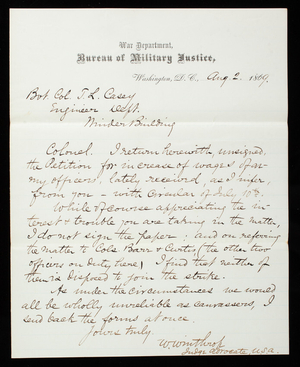 War Department,
Bureau of Military Justice,
Washington, D.C., Aug 2. 1869.
Bvt Col. T. L. Casey
Engineer Dept.
Winder Building
Colonel. I return herewith, unsigned,
the Petition for increase of wages of ar-
my officers, lately received, as I infer,
from you - with Circular of July 10th.
While of course appreciating the in-
terest & trouble you are taking in the matter,
I do not sign the paper; and on referring
the matter to Cols Barr & Curtis (the other two
officers on duty here) I find that neither of
them is disposed to join the strike.
As under the circumstances we would
all be wholly unreliable as canvassers, I
send back the forms at once
Yours truly
W Winthrop
Judge Advocate, U.S.A.